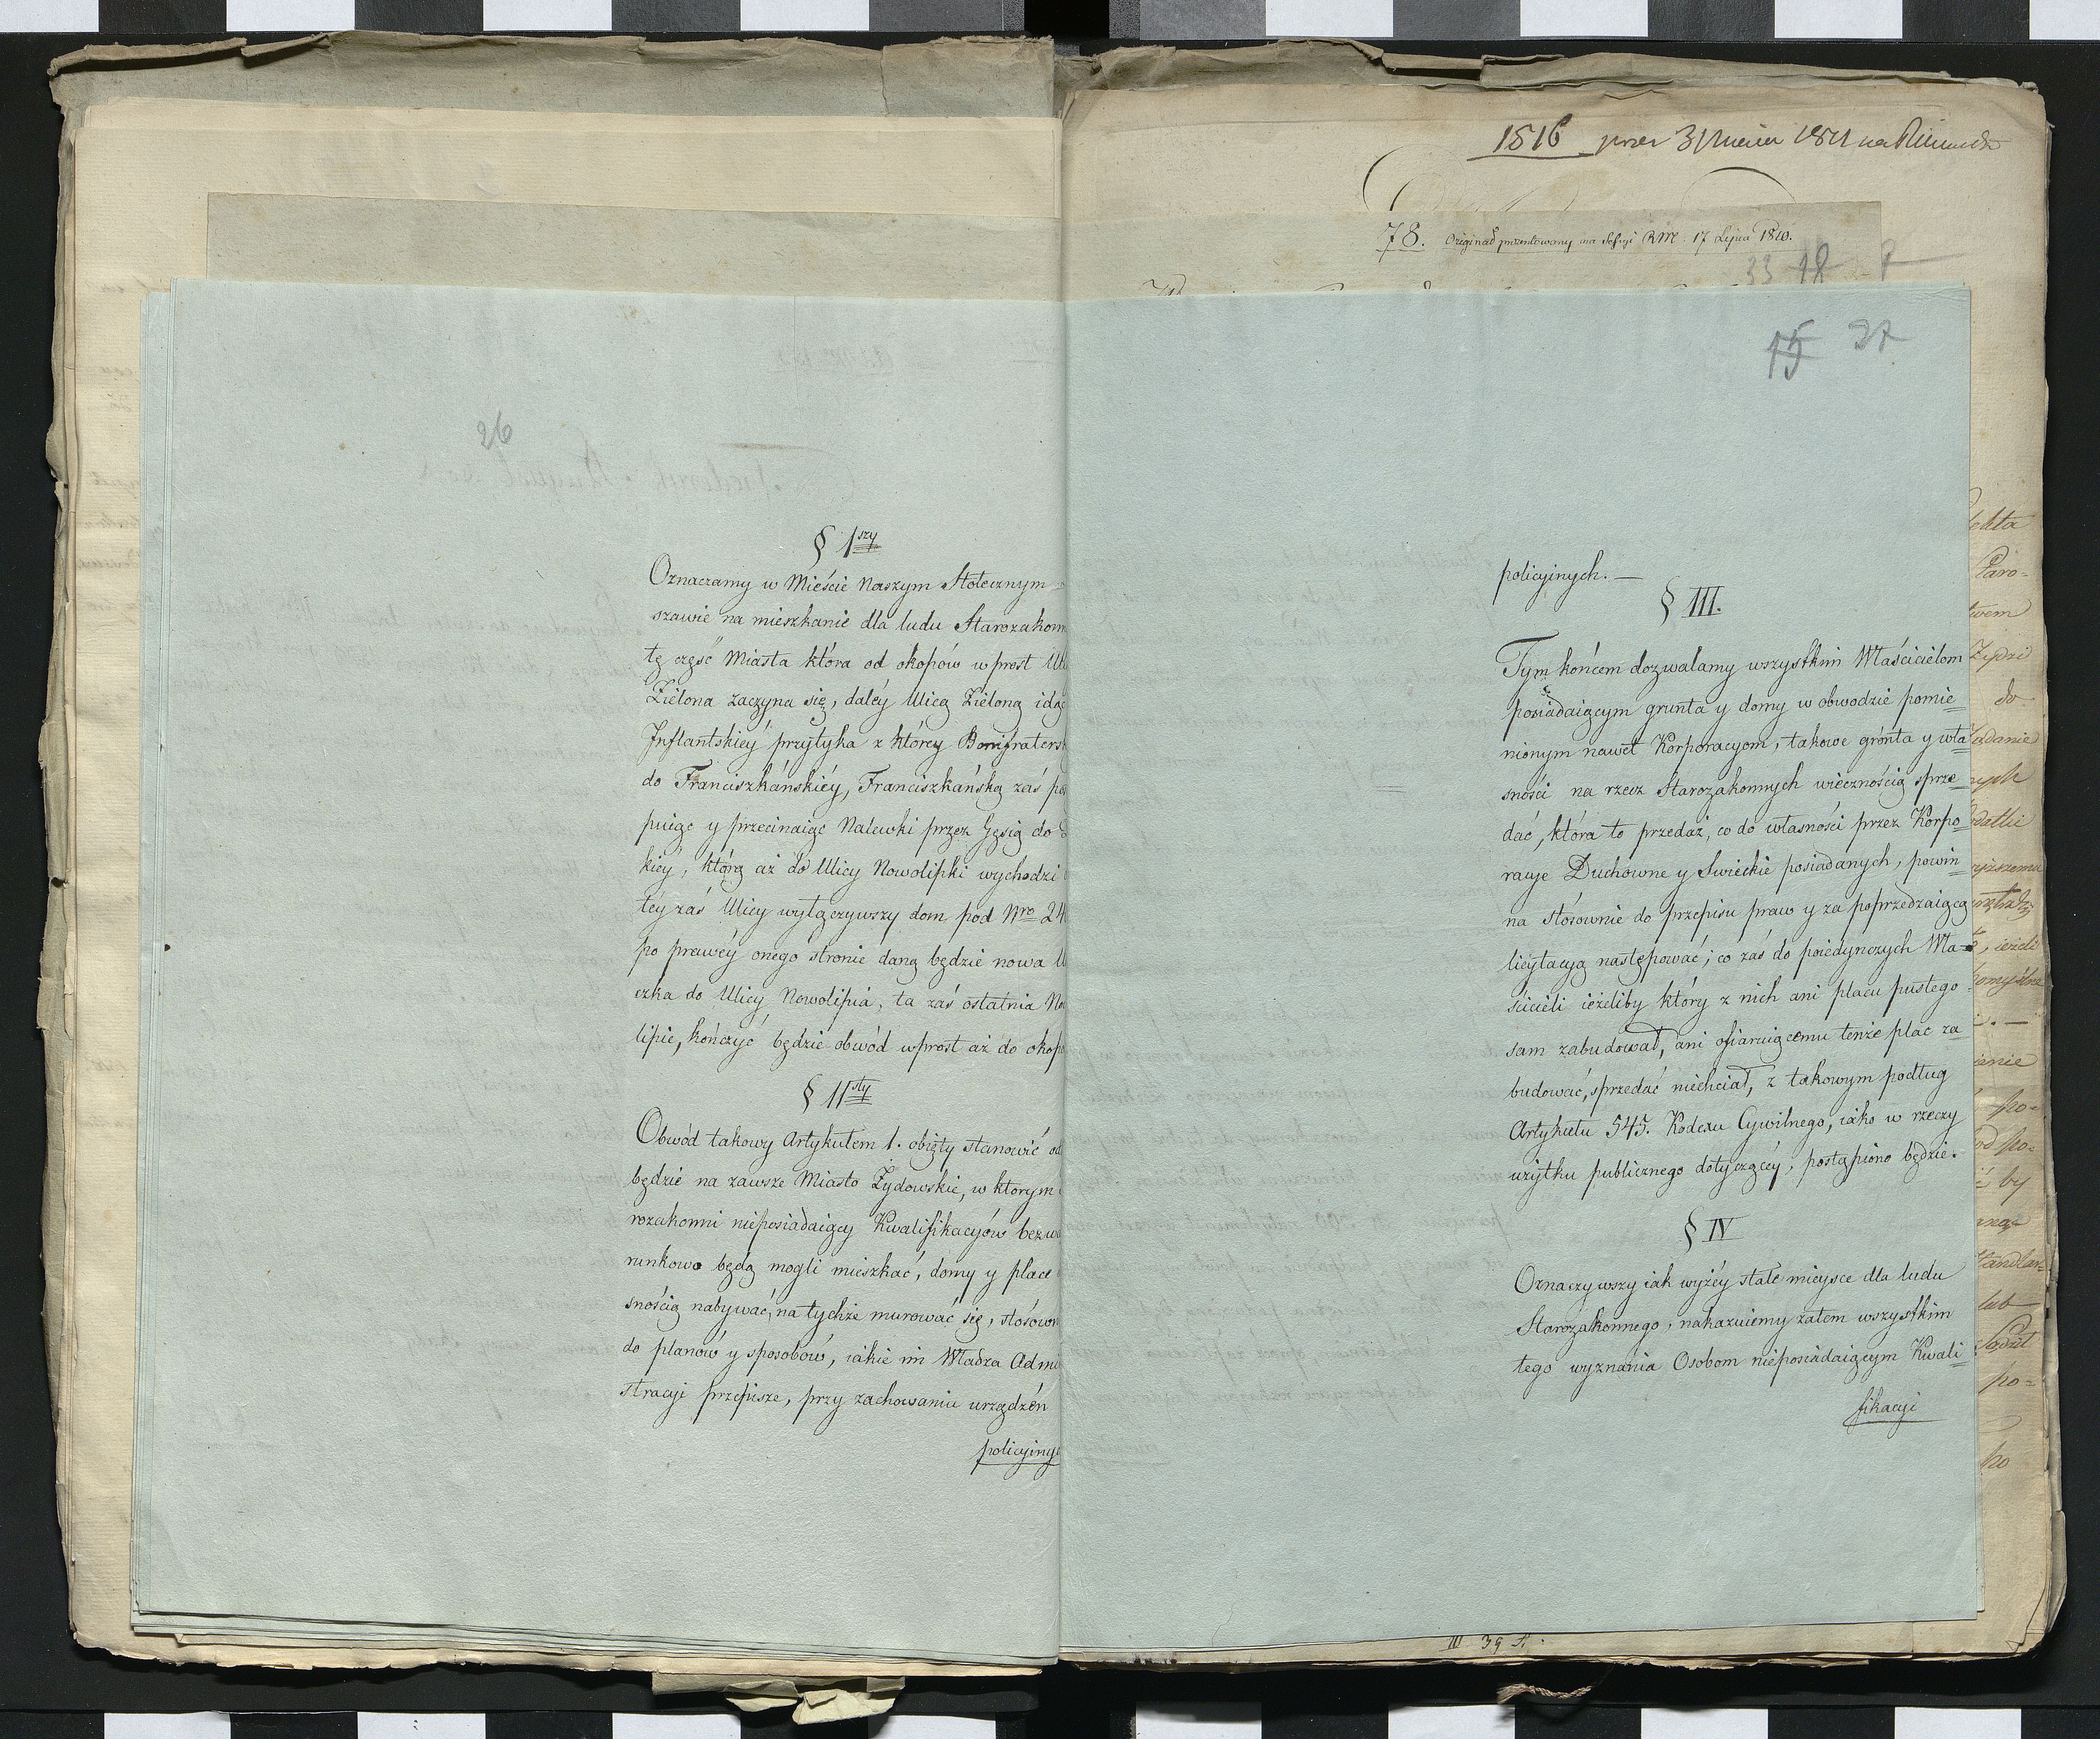 26
§ 1szy
Oznaczamy w Mieście Naszym Stołecznym
szawie na mieszkanie dla ludu Starozakonn
tę część Miasta która od okopów wprost Uli
Zielona zaczyna się, daléy Ulicą Zieloną idąc
Inflantskiéy przytyka z którey Bonifraters
do Franciszkańskiéy, Franciszkańską zaś po
puiąc y przecinaiąc Nalewki przez Gęsią do
kiéy, którą aż do Ulicy Nowolipki wychodzi
téy zaś Ulicy wyłączywszy dom pod Nro 24
po prawéy onego stronie daną będzie nowa U
czka do Ulicy Nowolipia, ta zaś ostatnia No
lipie, kończyć będzie obwód wprost aż do okop
§ IIgi
Obwód takowy Artykułem 1. obięty stanowić od
będzie na zawsze Miasto Żydowskie, w którym
rozakonni nieposiadaiący Kwalifikacyów bezwa
runkowo będą mogli mieszkać, domy y place
snością nabywać, na tychże murować się, stósown
do planów y sposobów, iakie im Władza Admi
stracyi przepisze, przy zachowaniu urządzén
policyiny
1816 przez
78. Originał prezentowany na Sessyi RM. 17 Lipca 1810.
33 18
15 27
policyinych. —
§ III.
Tym końcem dozwalamy wszystkim Właścicielom
posiadaiącym grunta y domy w obwodzie pomie=
nionym nawet Korporacyom, takowe grónta y wła=
sności na rzecz Starozakonnych wiecznością sprze=
dać, która to przedaż, co do własności przez Korpo=
racye Duchowne y Swieckie posiadanych, powin=
na stósownie do przepisu praw y za poprzedzaiącą
licytacyą następować; co zaś do poiedynczych Wła=
ścicieli ieżeliby który z nich ani placu pustego
sam zabudował, ani ofiaruiącemu tenże plac za=
budować, sprzedać niechciał, z takowym podług
Artykułu 545. Kodexu Cywilnego, iako w rzeczy
użytku publicznego dotyczącéy, postąpiono będzie.
§ IV
Oznaczywszy iak wyżéy stałe mieysce dla ludu
Starozakonnego, nakazuiemy zatem wszystkim
tego wyznania Osobom nieposiadaiącym Kwali=
fikacyi